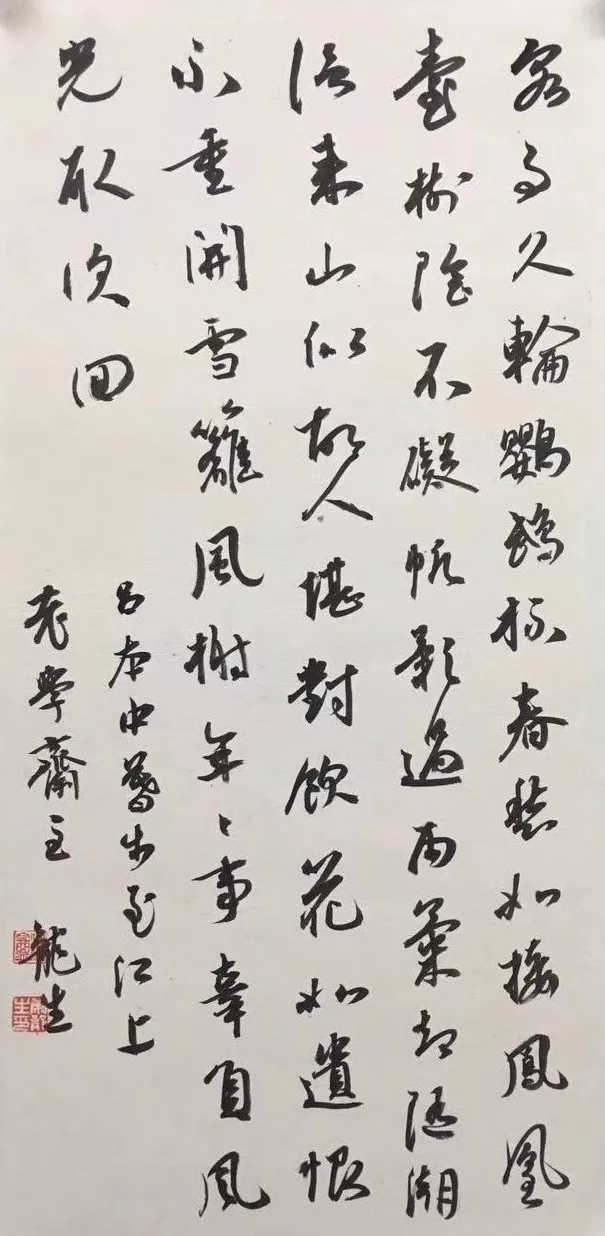 客事久輪鸚鵡杯春愁如接鳳凰
臺樹陰不礙帆影過雨氣却隨潮
信来山似故人堪對飲花如遺恨
不重開雪籬風榭年々事辜負風
光取次回
吕本中暮步至江上
老學齋主 龍生